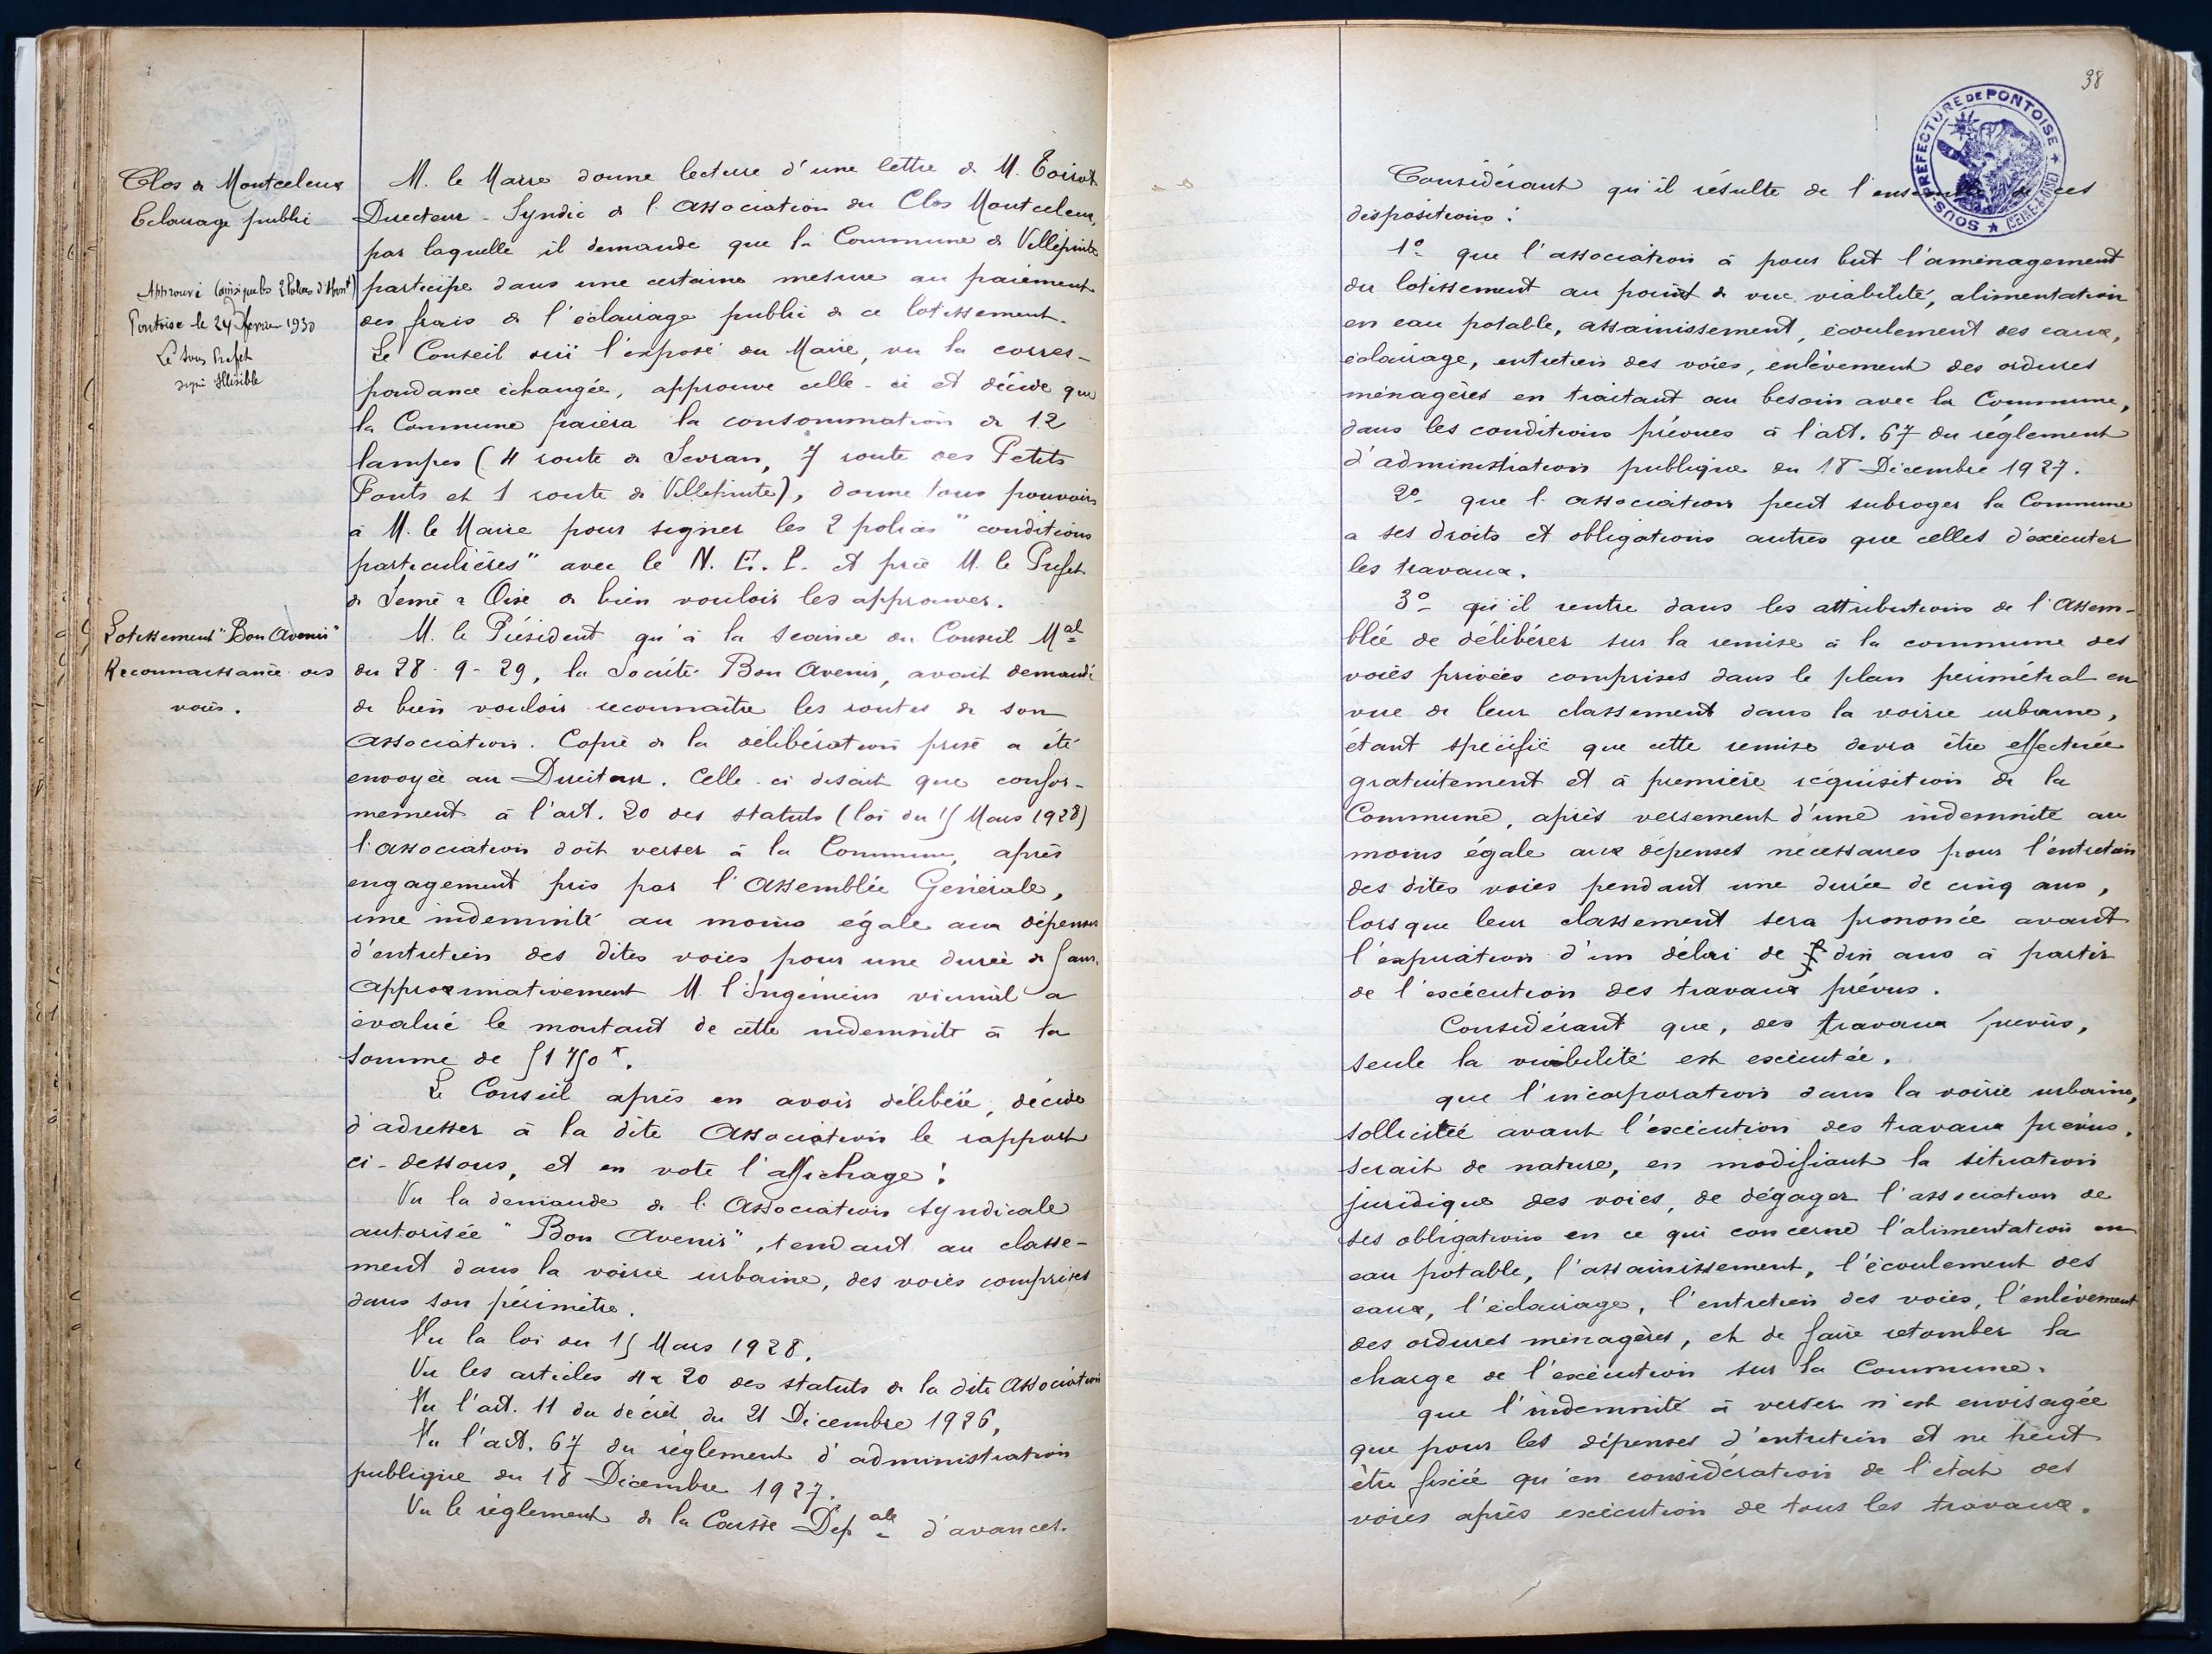 Clos de Montceleux
Eclairage public
Approuvé (ainsi que les 2 Polices d'Abont)
Pontoise le 24 février 1930
Le Sous Prefet
signé Illisible
M. le Maire donne lecture d'une lettre de M.
Directeur-Syndic de l'Association du Clos Montceleux,
par laquelle il demande que la Commune de Villepinte
participe dans une certaine mesure au paiement
des frais de l'éclairage public de ce lotissement.
Le Conseil ouï l'exposé du Maire, vu la corres-
pondance échangée, approuve celle-ci et décide que
la Commune paiera la consommation de 12
lampes (4 route de Sevran, 7 route des Petits
Ponts et 1 route de Villepinte), donne tous pouvoirs
à M. le Maire pour signer les 2 polices "conditions
particulières" avec le N. E. P. et prie M. le Prefet
de Seine & Oise de bien vouloir les approuver.
Lotissement "Bon Avenir"
Reconnaissance des
voies.
M. le Président qu'à la séance du Conseil Mal
du 28-9-29, la Société Bon Avenir, avait demandé
de bien vouloir reconnaître les routes de son
Association. Copie de la délibération prise a été
envoyée au Directeur. Celle-ci disait que confor-
mement à l'art. 20 des statuts (loi du 15 Mars 1928)
l'association doit verser à la Commune, après
engagement pris par l'Assemblée Générale,
une indemnité au moins égale aux dépenses
d'entretien des dites voies pour une durée de 5 ans.
Approximativement M. l'Ingénieur vicinal a
évalué le montant de cette indemnité à la
somme de 51750 f.
Le Conseil après en avoir délibéré, décide
d'adresser à la dite Association le rapport
ci-dessous, et en vote l'affichage:
Vu la demande de l'Association Syndicale
autorisée "Bon Avenir", tendant au classe-
ment dans la voirie urbaine, des voies comprises
dans son périmètre.
Vu la loi du 15 Mars 1928,
Vu les articles 4 & 20 des statuts de la dite Association
Vu l'art. 11 du décret du 21 Décembre 1926,
Vu l'art. 67 du règlement d'administration
publique du 18 Décembre 1927.
Vu le règlement de la Caisse Depale d'avances.
38
SOUS-PRÉFECTURE DE PONTOISE
(SEINE-&-OISE)
Considérant qu'il résulte de l'ensemble de ces
dispositions:
1° que l'association à pour but l'aménagement
du lotissement au point de vue viabilité, alimentation
en eau potable, assainissement, écoulement des eaux,
éclairage, entretien des voies, enlèvement des ordures
ménagères en traitant au besoin avec la Commune,
dans les conditions prévues à l'art. 67 du règlement
d'administration publique du 18 Décembre 1927.
2° que l'association peut subroger la Commune
a ses droits et obligations autres que celles d'exécuter
les travaux.
3° qu'il rentre dans les attributions de l'Assem-
blée de délibérer sur la remise à la commune des
voies privées comprises dans le plan périmétral en
vue de leur classement dans la voirie urbaine,
étant spécifié que cette remise devra être effectuée
gratuitement et à première réquisition de la
Commune, après versement d'une indemnité au
moins égale aux dépenses nécessaires pour l'entretien
des dites voies pendant une durée de cinq ans,
lorsque leur classement sera prononcée avant
l'expiration d'un délai de dix ans à partir
de l'exécution des travaux prévus.
Considérant que, des travaux prévus,
seule la viabilité est exécutée.
que l'incorporation dans la voirie urbaine,
sollicitée avant l'exécution des travaux prévus,
serait de nature, en modifiant la situation
juridique des voies, de dégager l'association de
ses obligations en ce qui concerne l'alimentation en
eau potable, l'assainissement, l'écoulement des
eaux, l'éclairage, l'entretien des voies, l'enlèvement
des ordures ménagères, et de faire retomber la
charge de l'exécution sur la Commune.
que l'indemnité à verser n'est envisagée
que pour les dépenses d'entretien et ne peut
être fixée qu'en considération de l'état des
voies après exécution de tous les travaux.